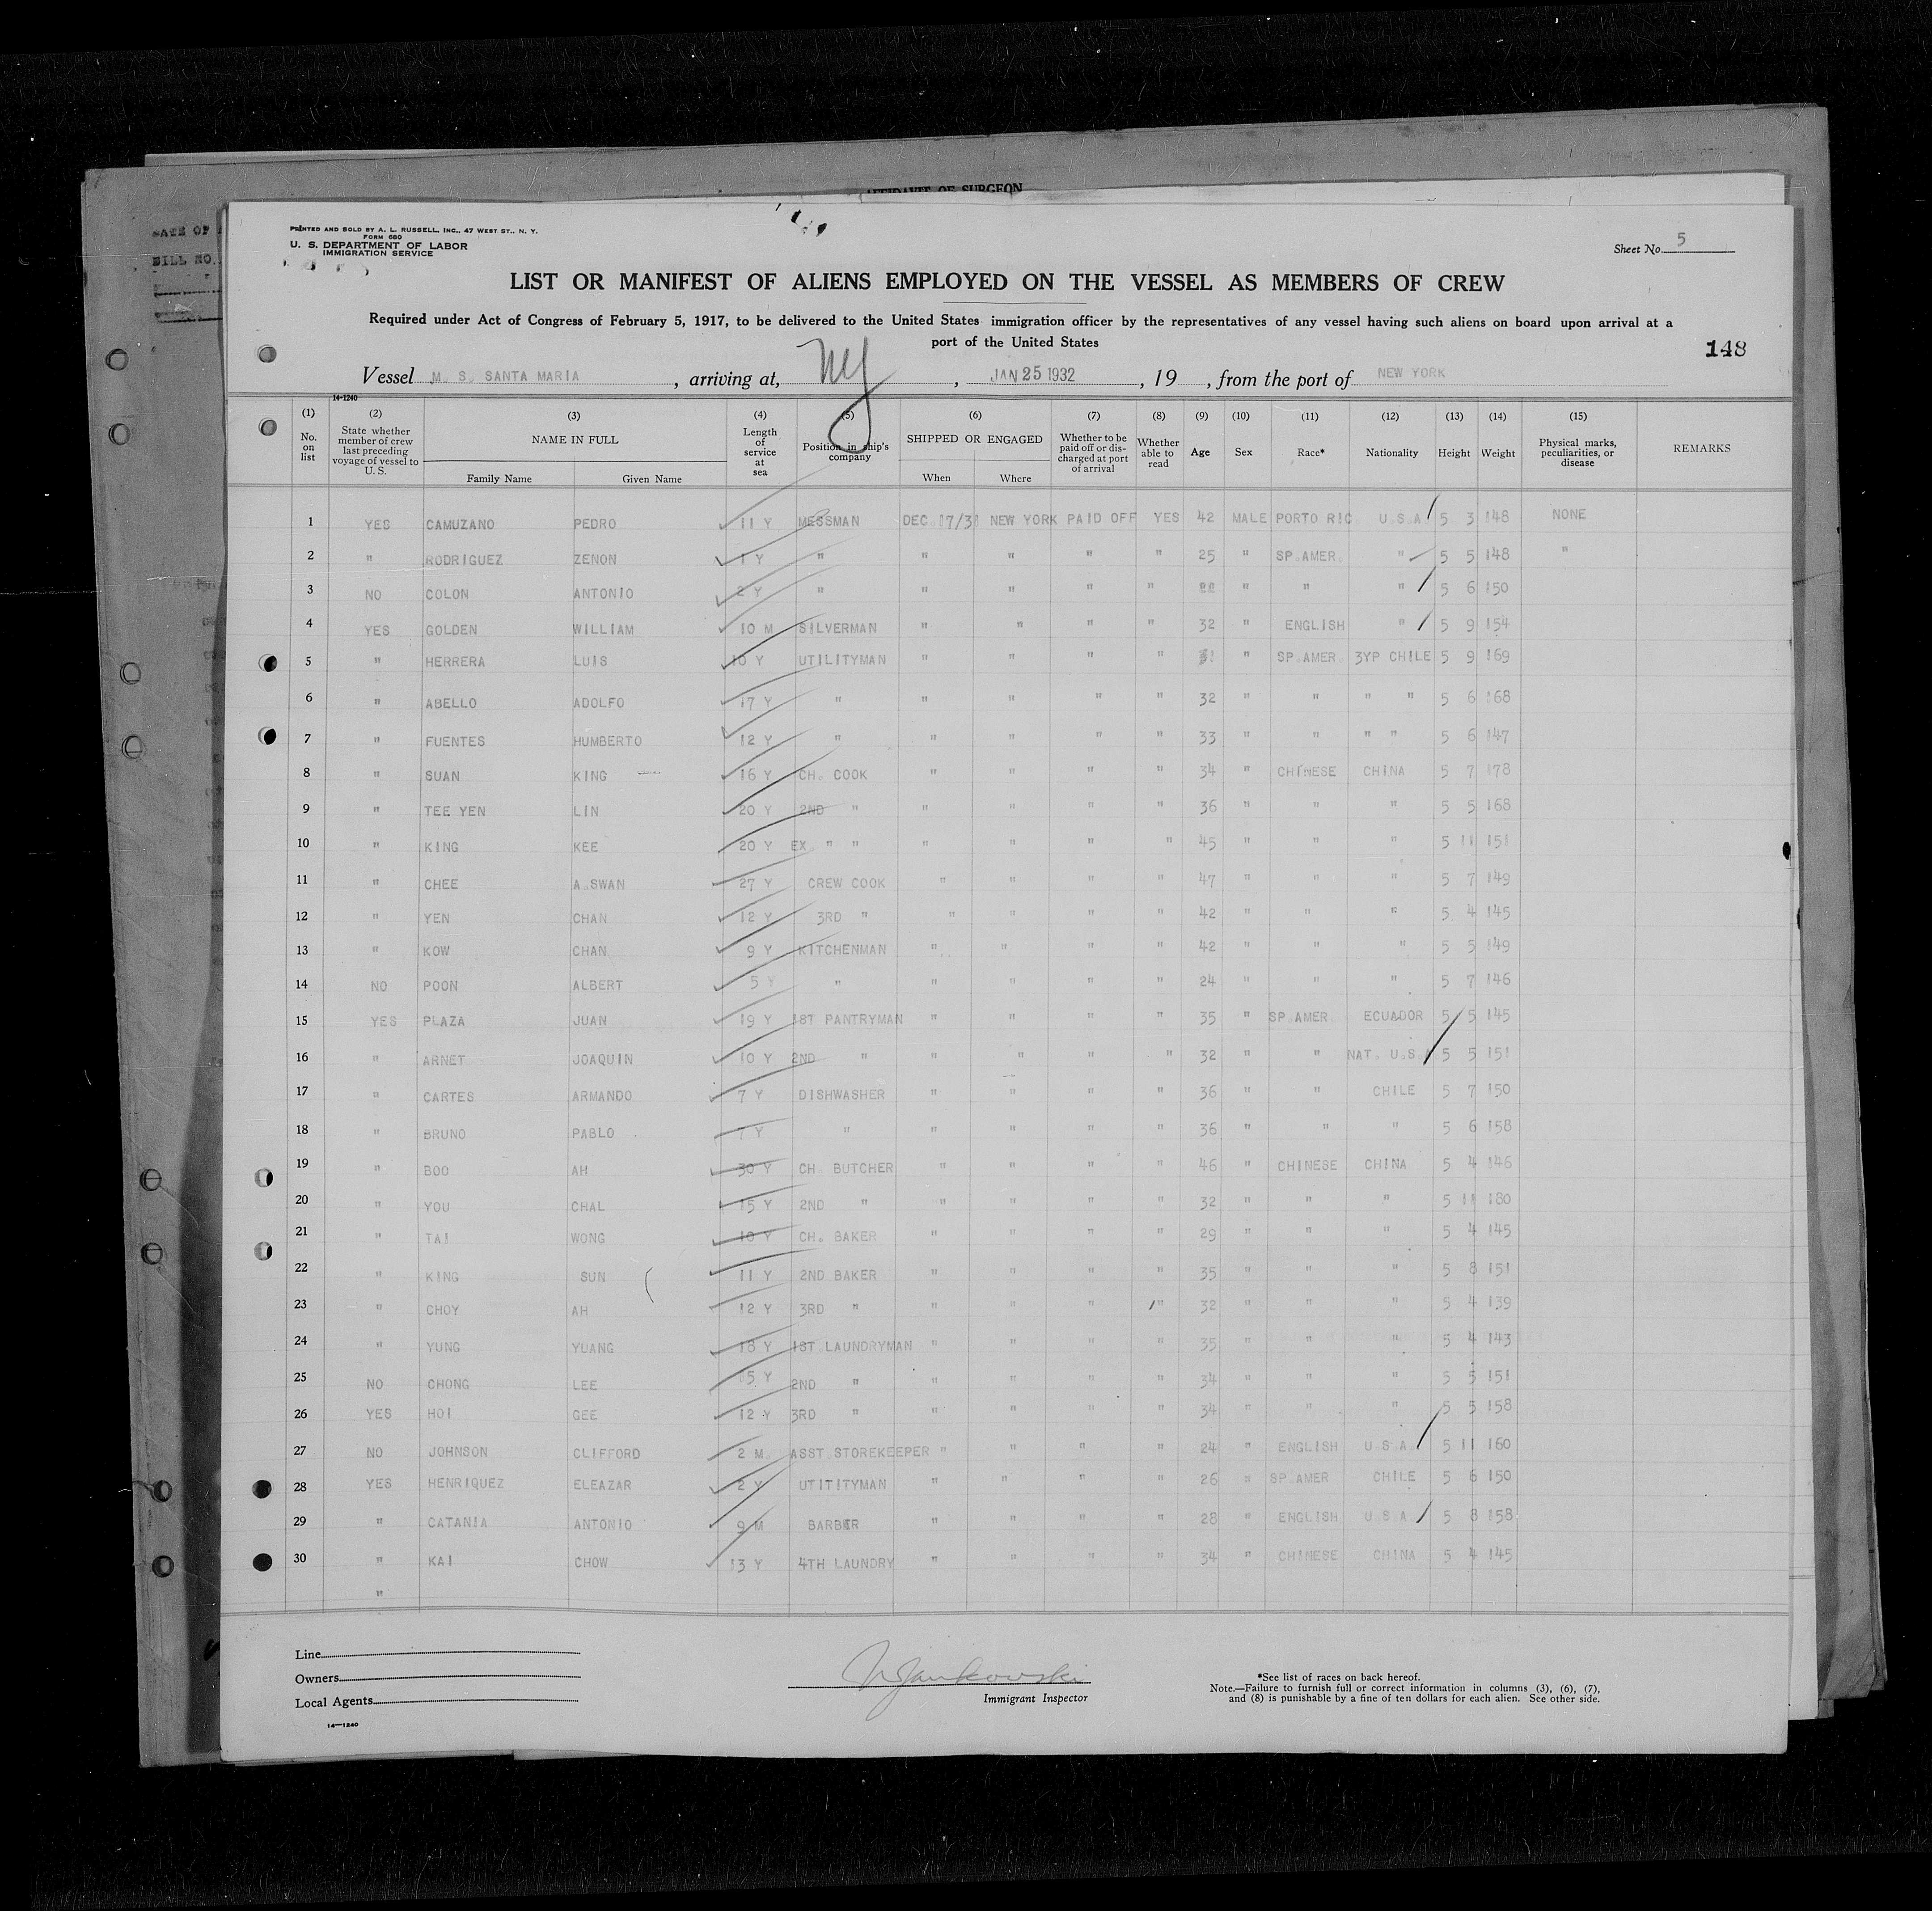 AFFIDAVIT OF SURGEON
BILL NO.
PRINTED AND SOLD BY A. L. RUSSELL, INC., 47 WEST ST., N. Y.
FORM 680
U. S. DEPARTMENT OF LABOR
IMMIGRATION SERVICE
Sheet No. 5
LIST OR MANIFEST OF ALIENS EMPLOYED ON THE VESSEL AS MEMBERS OF CREW
Required under Act of Congress of February 5, 1917, to be delivered to the United States immigration officer by the representatives of any vessel having such aliens on board upon arrival at a
port of the United States
148
Vessel M. S. SANTA MARIA, arriving at, NY, JAN 25 1932, 19 , from the port of NEW YORK
14-1240
(1) (2) (3) (4) (5) (6) (7) (8) (9) (10) (11) (12) (13) (14) (15)
No. on list State whether member of crew last preceding voyage of vessel to U. S. NAME IN FULL Length of service at sea Position in ship's company SHIPPED OR ENGAGED Whether to be paid off or discharged at port of arrival Whether able to read Age Sex Race* Nationality Height Weight Physical marks, peculiarities, or disease REMARKS
Family Name Given Name When Where
1 YES CAMUZANO PEDRO 11 Y MESSMAN DEC 17/31 NEW YORK PAID OFF YES 42 MALE PORTO RIC U.S.A 5 3 148 NONE
2 " RODRIGUEZ ZENON 1 Y " " " " " 25 " SP.AMER. " 5 5 148 "
3 NO COLON ANTONIO 2 Y " " " " " " " " 5 6 150
4 YES GOLDEN WILLIAM 10 M SILVERMAN " " " " 32 " ENGLISH " 5 9 154
5 " HERRERA LUIS 10 Y UTILITYMAN " " " " " SP.AMER. 3YP CHILE 5 9 169
6 " ABELLO ADOLFO 17 Y " " " " " 32 " " " " 5 6 168
7 " FUENTES HUMBERTO 12 Y " " " " " 33 " " " " 5 6 147
8 " SUAN KING 16 Y CH. COOK " " " " 34 " CHINESE CHINA 5 7 178
9 " TEE YEN LIN 20 Y 2ND " " " " " 36 " " " 5 5 168
10 " KING KEE 20 Y EX. " " " " " " 45 " " " 5 11 151
11 " CHEE A.SWAN 27 Y CREW COOK " " " " 47 " " " 5 7 149
12 " YEN CHAN 12 Y 3RD " " " " " 42 " " " 5 4 145
13 " KOW CHAN 9 Y KITCHENMAN " " " " 42 " " " 5 5 149
14 NO POON ALBERT 5 Y " " " " " 24 " " " 5 7 146
15 YES PLAZA JUAN 19 Y 1ST PANTRYMAN " " " " 35 " SP.AMER ECUADOR 5 5 145
16 " ARNET JOAQUIN 10 Y 2ND " " " " " 32 " " NAT. U.S.A 5 5 151
17 " CARTES ARMANDO 7 Y DISHWASHER " " " " 36 " " CHILE 5 7 150
18 " BRUNO PABLO 7 Y " " " " " 36 " " " 5 6 158
19 " BOO AH 30 Y CH. BUTCHER " " " " 46 " CHINESE CHINA 5 4 146
20 " YOU CHAL 15 Y 2ND " " " " " 32 " " " 5 11 180
21 " TAI WONG 10 Y CH. BAKER " " " " 29 " " " 5 4 145
22 " KING SUN 11 Y 2ND BAKER " " " " 35 " " " 5 8 151
23 " CHOY AH 12 Y 3RD " " " " " 32 " " " 5 4 139
24 " YUNG YUANG 18 Y 1ST LAUNDRYMAN " " " " 35 " " " 5 4 143
25 NO CHONG LEE 15 Y 2ND " " " " " 34 " " " 5 5 151
26 YES HOI GEE 12 Y 3RD " " " " " 34 " " " 5 5 158
27 NO JOHNSON CLIFFORD 2 M. ASST.STOREKEEPER " " " " 24 " ENGLISH U.S.A. 5 11 160
28 YES HENRIQUEZ ELEAZAR 2 Y UTITITYMAN " " " " 26 " SP.AMER CHILE 5 6 150
29 " CATANIA ANTONIO 9 M BARBER " " " " 28 " ENGLISH U.S.A. 5 8 158
30 " KAI CHOW 13 Y 4TH LAUNDRY " " " " 34 " CHINESE CHINA 5 4 145
"
Line
Owners
Local Agents
14-1240
Jankowski
Immigrant Inspector
*See list of races on back hereof.
Note.—Failure to furnish full or correct information in columns (3), (6), (7),
and (8) is punishable by a fine of ten dollars for each alien. See other side.